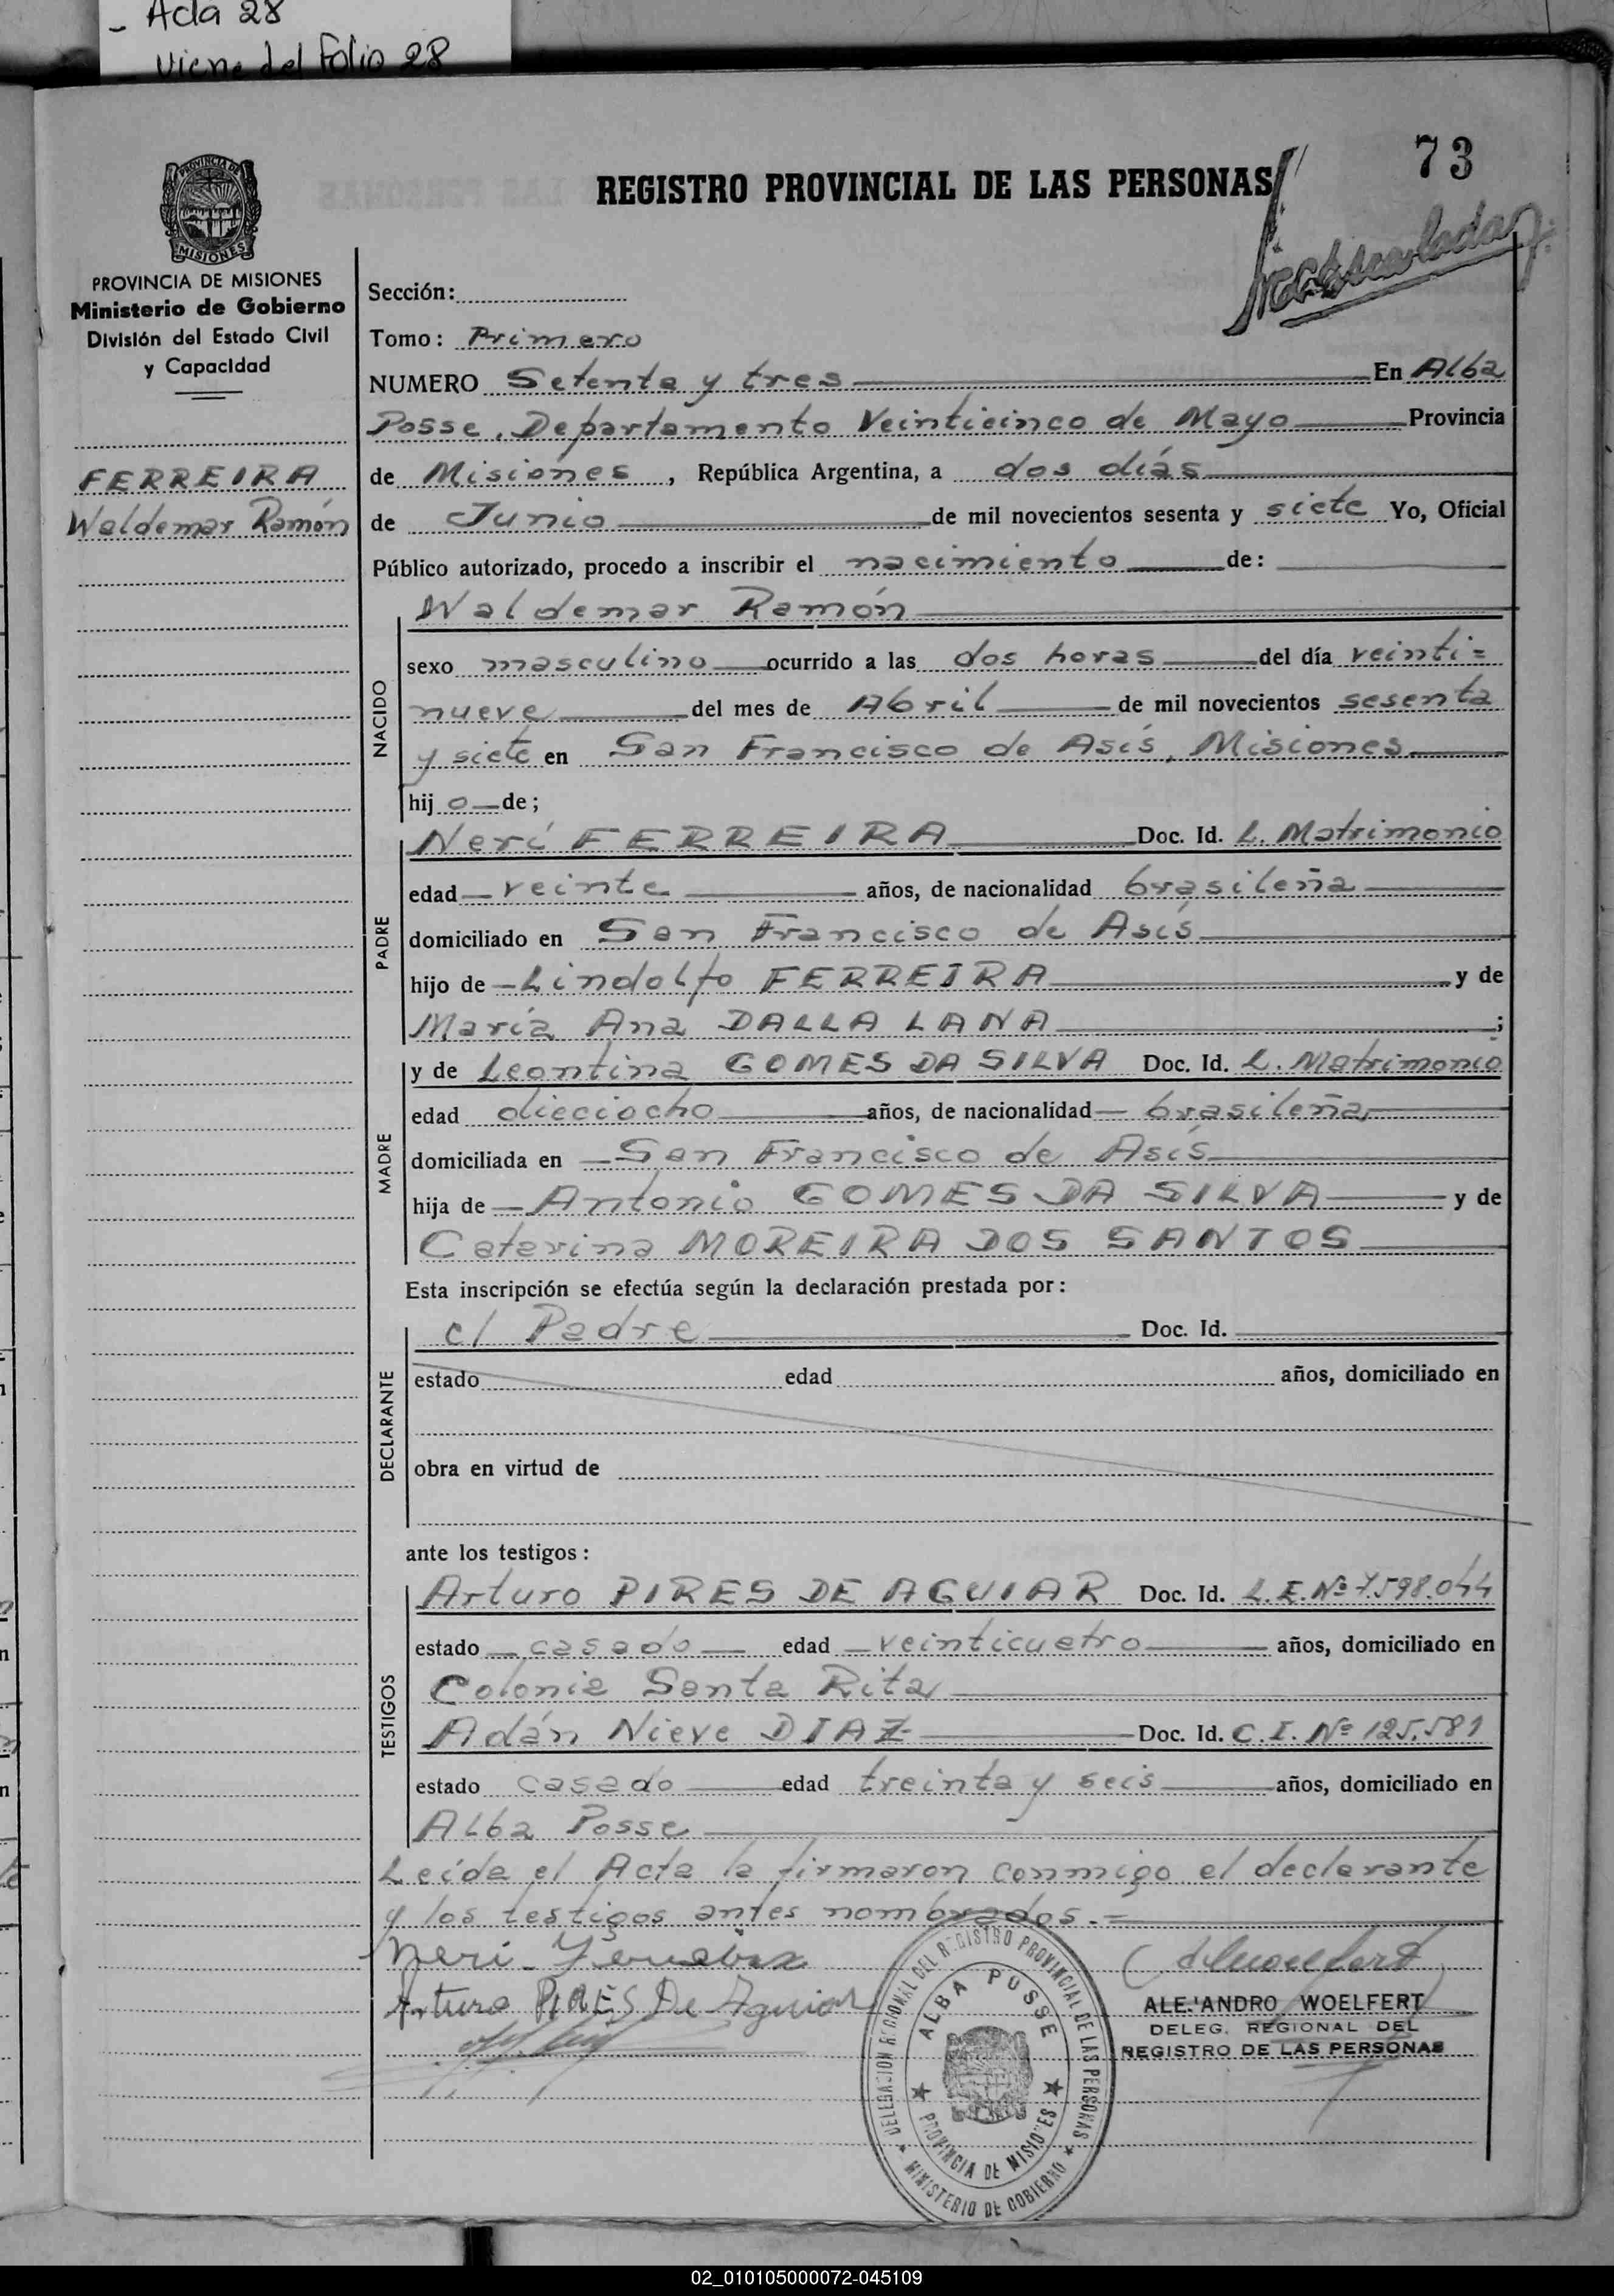 - Acta 28
- Viene del Folio 28
73
REGISTRO PROVINCIAL DE LAS PERSONAS
PROVINCIA DE
MISIONES
PROVINCIA DE MISIONES
Ministerio de Gobierno
División del Estado Civil
y Capacidad
FERREIRA
Waldemar Ramón
Sección:
Tomo: Primero
NUMERO Setenta y tres En Alba
Posse, Departamento Veinticinco de Mayo Provincia
de Misiones, República Argentina, a dos días
de Junio de mil novecientos sesenta y siete Yo, Oficial
Público autorizado, procedo a inscribir el nacimiento de:
Waldemar Ramón
NACIDO
sexo masculino ocurrido a las dos horas del día veinti=
nueve del mes de Abril de mil novecientos sesenta
y siete en San Francisco de Asís, Misiones
hijo de;
PADRE
Neri FERREIRA Doc. Id. L. Matrimonio
edad veinte años, de nacionalidad brasileña
domiciliado en San Francisco de Asís
hijo de Lindolfo FERREIRA y de
María Ana DALLA LANA ;
MADRE
y de Leontina GOMES DA SILVA Doc. Id. L. Matrimonio
edad dieciocho años, de nacionalidad brasileña
domiciliada en San Francisco de Asís
hija de Antonio GOMES DA SILVA y de
Caterina MOREIRA DOS SANTOS
Esta inscripción se efectúa según la declaración prestada por:
DECLARANTE
el Padre Doc. Id.
estado edad años, domiciliado en
obra en virtud de
ante los testigos:
TESTIGOS
Arturo PIRES DE AGUIAR Doc. Id. L.E. Nº 7.598.044
estado casado edad veinticuatro años, domiciliado en
Colonia Santa Rita
Adán Nieve DIAZ Doc. Id. C.I. Nº 125.581
estado casado edad treinta y seis años, domiciliado en
Alba Posse
Leída el Acta la firmaron conmigo el declarante
y los testigos antes nombrados.=
Neri Ferreira
Arturo PIRES De Aguiar
ALEJANDRO WOELFERT
DELEG. REGIONAL DEL
REGISTRO DE LAS PERSONAS
DELEGACION REGIONAL DEL REGISTRO PROVINCIAL DE LAS PERSONAS
MINISTERIO DE GOBIERNO
ALBA POSSE
PROVINCIA DE MISIONES
02_010105000072-045109